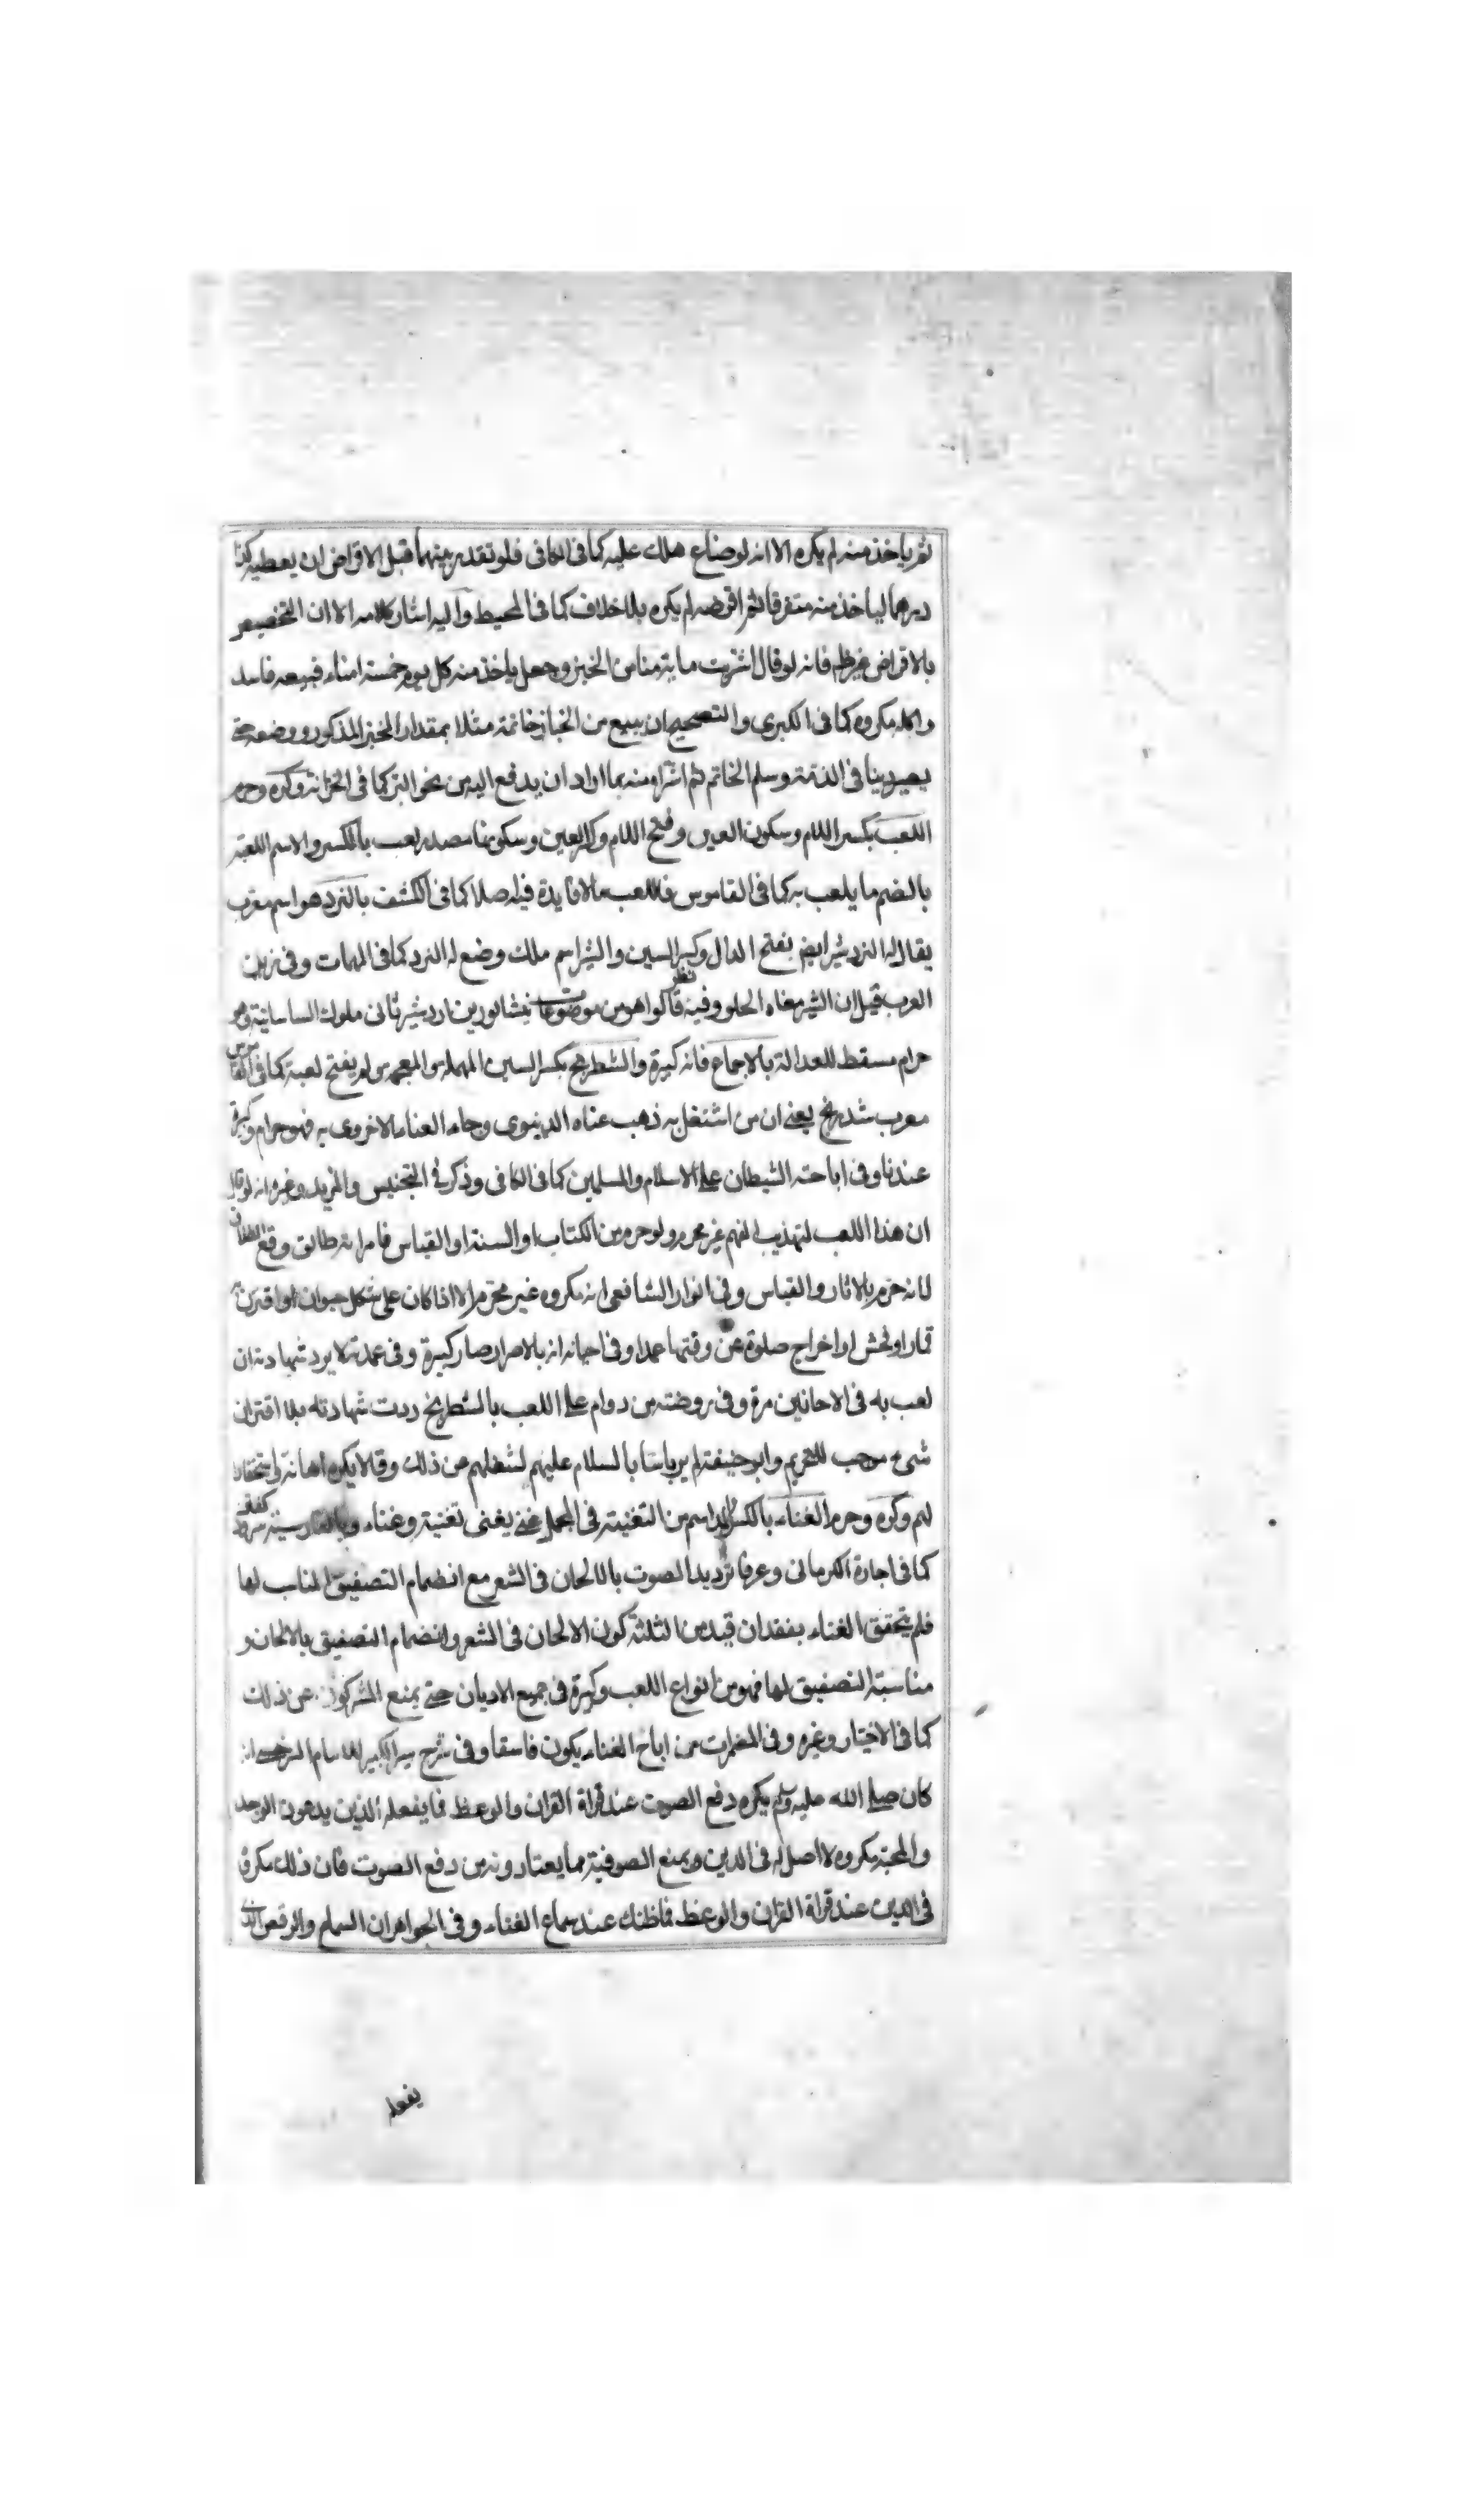 ثم ياخذ منه لم يكره الا انه لو ضاع هلك عليه كما فى الكافى فلو تقدم بينهما قبل الاقراض ان يعطيه كذا
درهما لياخذ منه متفرقا ثم اقرضه لم يكره بلا خلاف كما فى المحيط واليه اشار كلامه الا ان التخصيص
بالاقراض فانه لو قال اشتريت مائة منا من الخبز وجعل ياخذ منه كل يوم خمسة امناء فبيعه فاسد
واكله مكروه كما فى الكبرى والتصحيح ان يبيع من الخباز خاتمه مثلا بمقدار الخبز المذكور ووضعه حتى
يصير دينا فى الذمة وسلم الخاتم ثم اشتراه منه بما اراد ان يدفع اليه من نحو البر كما فى الخزانة وكره وحرم
اللعب بكسر اللام وسكون العين وفتح اللام وكسر العين وسكونها مصدر لعب بالكسر والاسم اللعبة
بالضم ما يلعب به كما فى القاموس فاللعب ما لا فايدة فيه اصلا كما فى الكشف بالنرد هو اسم معرب
يقال له النردشير ايضا بفتح الدال وكسر السين والشير اسم ملك وضع له النرد كما فى المهمات وفى زين
العرب قيل ان الشير معناه الحلو وفيه نظر قالوا هو من موضوعات نيشابور بن اردشير ثانى ملوك الساسانية وهو
حرام مسقط للعدالة بالاجماع فانه كبيرة والشطرنج بكسر السين المهملة او المعجمة ولم يفتح لعبة كما فى القاموس
معرب شدرنج يعنى ان من اشتغل به ذهب عناه الدنيوى وجاء العناء الاخروى به فهو حرام وكبيرة
عندنا وفى اباحته الشيطان على الاسلام والمسلمين كما فى الكافى وذكر فى التجنيس والمزيد وغيره انه لو قال
ان هذا اللعب لتهذيب الفهم غير محرم ولو حرم من الكتاب او السنة او القياس فامراته طالق وقع الطلاق
لانه حرم بالاثار والقياس وفى انوار الشافعى انه مكروه غير محترم الا اذا كان على شكل حيوان او اقترن به
قمار او فحش او اخراج صلوة عن وقتها عمدا وفى احيانه انه بالاصرار صار كبيرة وفى عمدته لا يرد شهادته ان
لعب به فى الاحايين مرة وفى روضته من دوام على اللعب بالشطرنج ردت شهادته بلا اقتران
شىء موجب للتحريم وابو حنيفة لم ير باسا بالسلام عليهم لشغلهم عن ذلك وقالا يكره اهانة واستحقارا
لهم وكره وحرم الغناء بالكسر والمد اسم من التغنية فى المجمل غنى يغنى تغنية وغناء وبالفارسية
كما فى اجارة الكرمانى وعرفا ترديد الصوت بالالحان فى الشعر مع انضمام التصفيق المناسب لها
فلم يتحقق الغناء بفقدان قيد من الثلثة كون الالحان فى الشعر وانضمام التصفيق بالالحان و
مناسبة التصفيق لها فهو من انواع اللعب وكبيرة فى جميع الاديان حتى يمنع المشركون عن ذلك
كما فى الاختيار وغيره وفى المضمرات من اباح الغناء يكون فاسقا وفى شرح سير الكبير للامام السرخسى انه
كان صلى الله عليه وسلم يكره رفع الصوت عند قراة القران والوعظ فما يفعله الذين يدعون الوجد
والمحبة مكروه لا اصل له فى الدين ويمنع الصوفية مما يعتادونه من رفع الصوت فان ذلك مكروه
فى الدين عند قراة القران والوعظ فما ظنك عند سماع الغناء وفى الجواهر ان السماع والرقص الذى
يفعله